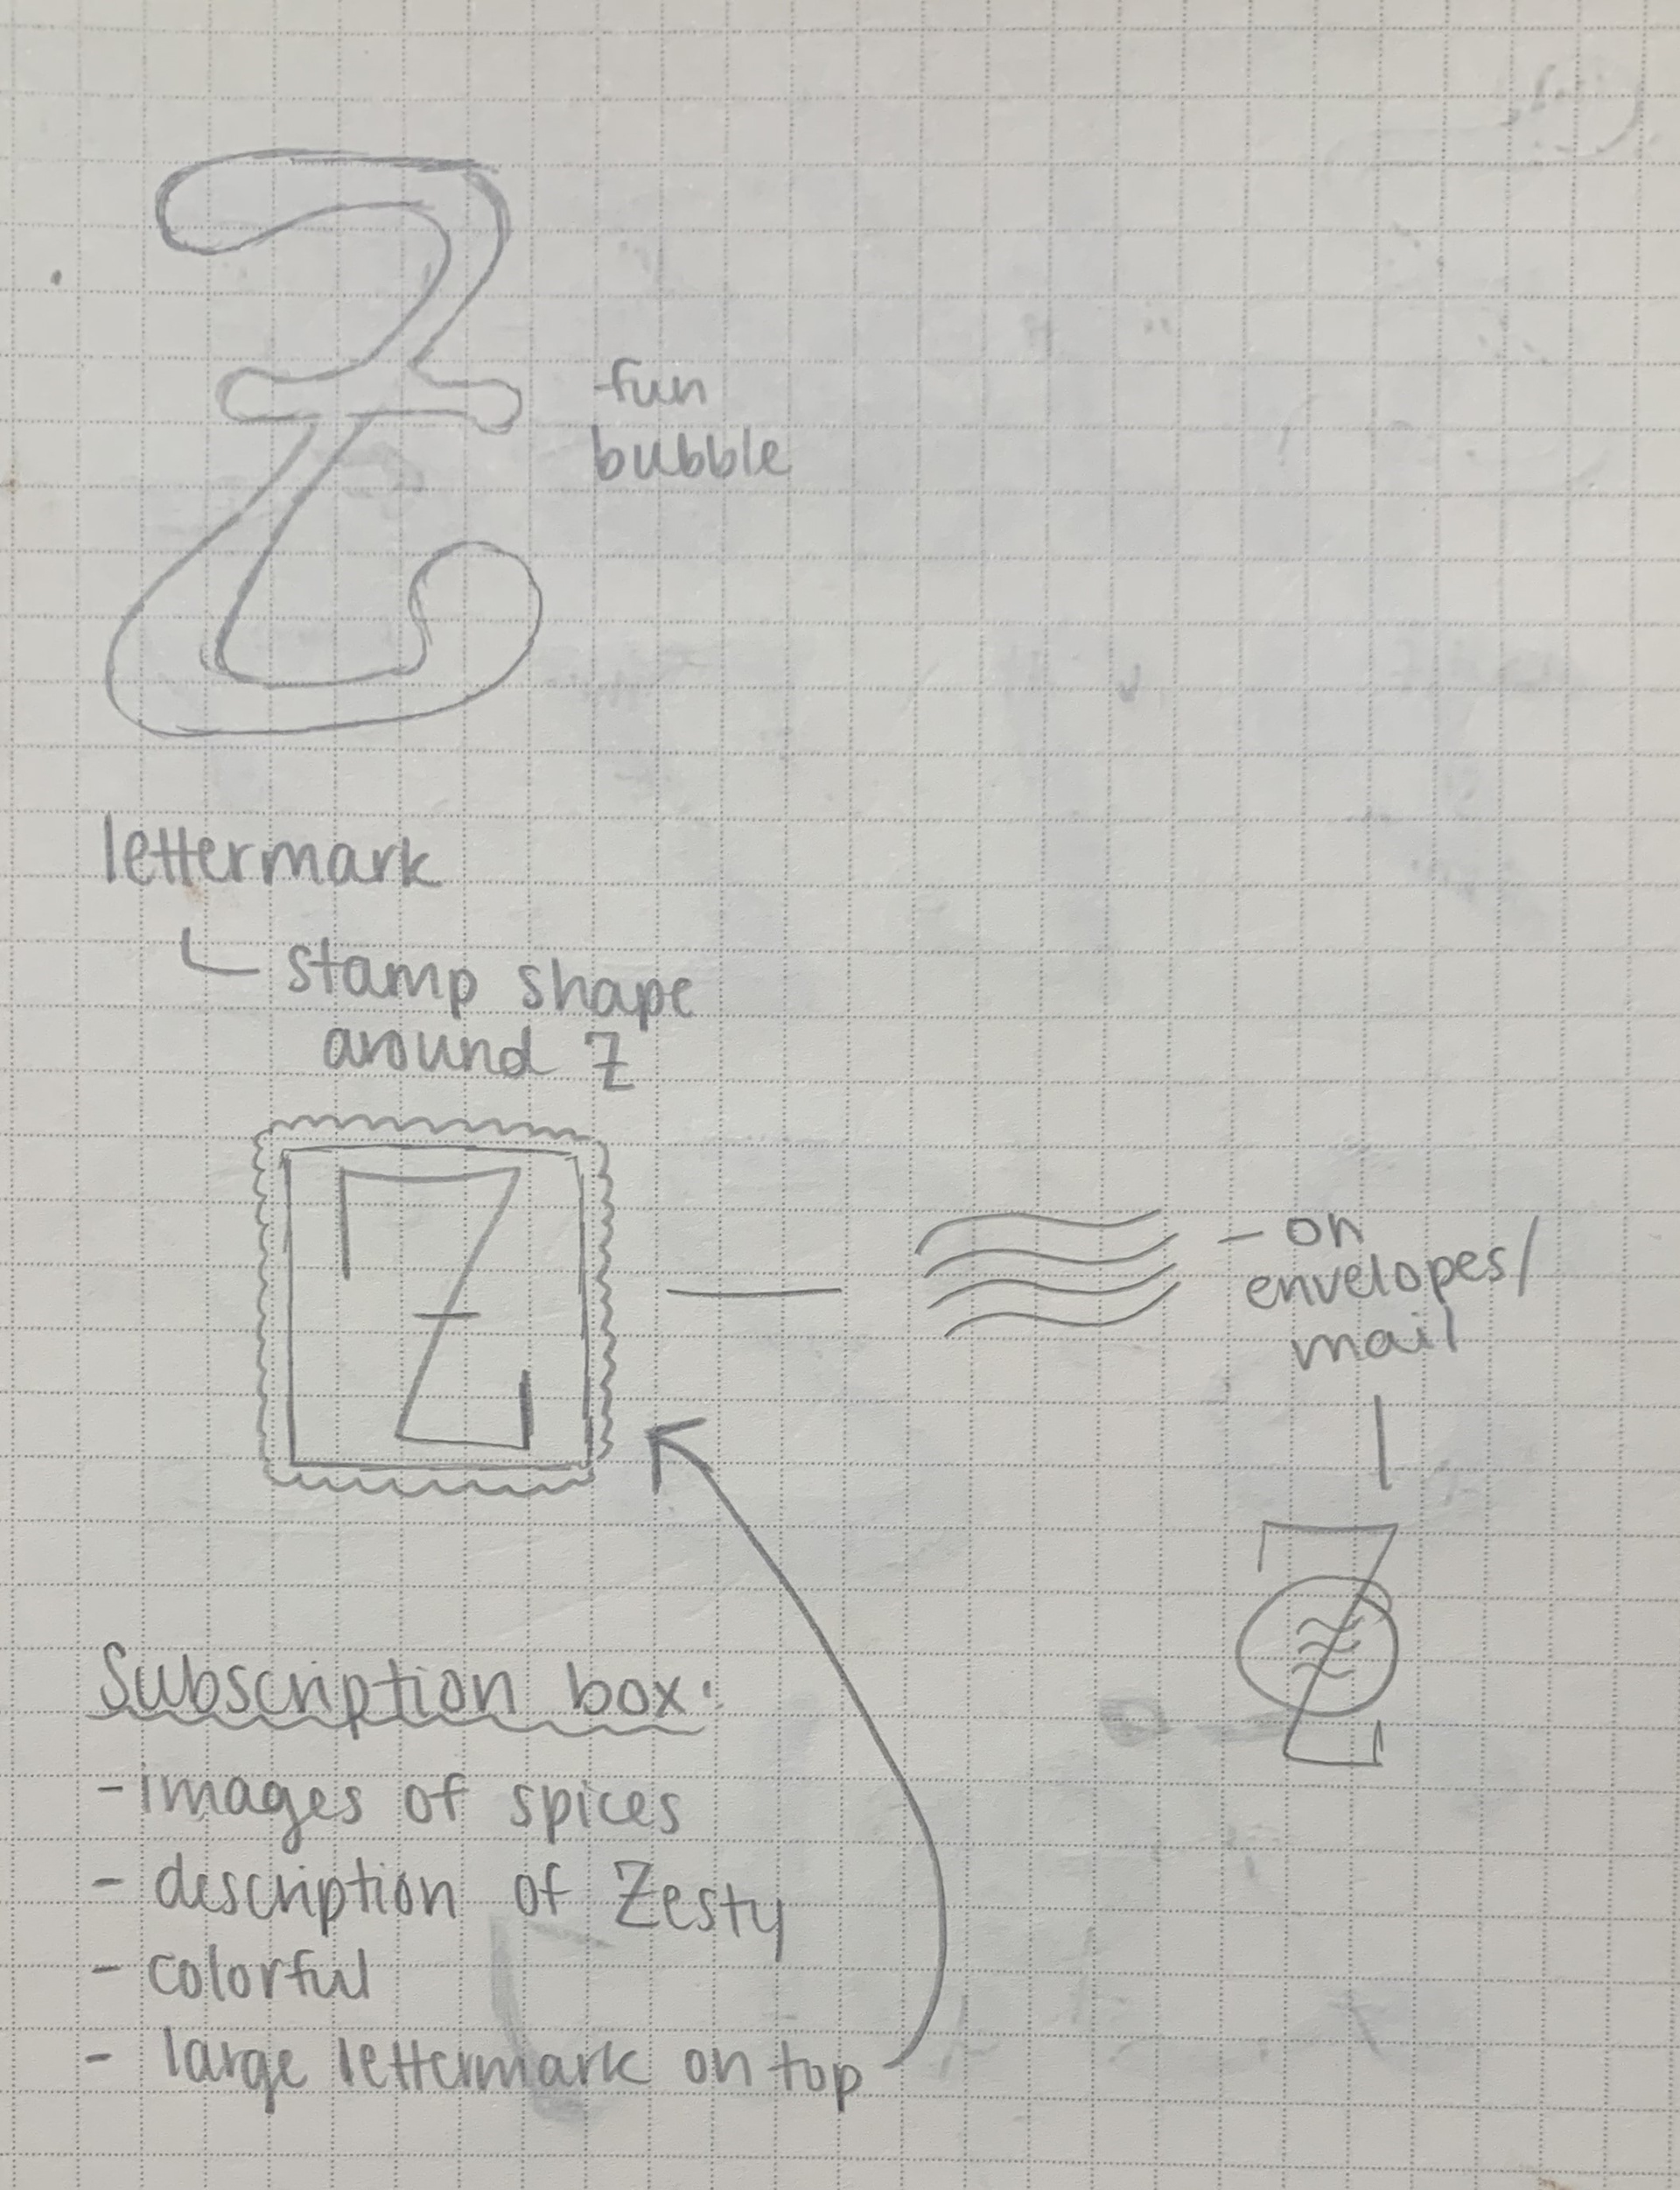 Z
fun
bubble
lettermark
stamp shape
around Z
Z
- on
envelopes/
mail
Z
Subscription box:
- images of spices
- description of Zesty
- colorful
- large lettermark on top